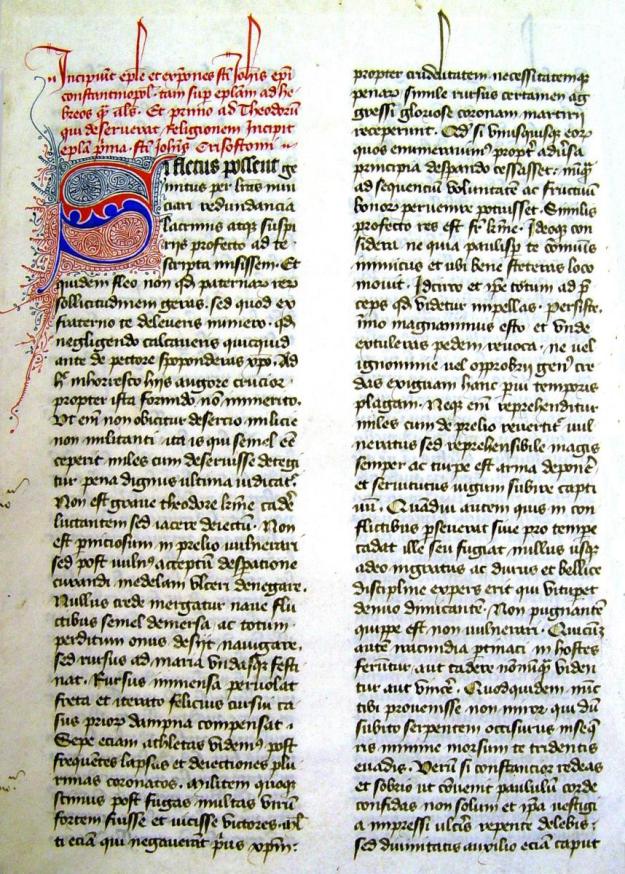 Incipiunt eple et expones sti Johis epi
constantinopol. tam sup eplam ad he-
breos q als. Et primo ad Theodorū
qui deseruerat Religionem Incipit
epla pma sti Johis Crisostomi
Si fletus possent ge
mitus per lras nun
ciari redundancia
lacrimis atqz suspi
riis profecto ad te
scripta misissem. Et
quidem fleo non qd paternar rer
sollicitudinem geras. sed quod ex
fraterno te deleueris numero. qd
negligendo calcaueris quicquid
ante de pectore spoponderas xpo. Ad
h inhorresco hijs augore crucior
propter ista formido no inmerito.
Ut em non obicitur desercio milicie
non militanti ita is qui semel ee
ceperit miles cum deseruisse detegi
tur pena dignus ultima iudicat.
Non est graue theodore kme cade
luctantem sed iacere deiectu. Non
est pniciosum in prelio uulnerari
sed post uuln acceptu despatione
curandi medelam ulceri denegare.
Nullus crede mergatur naue flu
ctibus semel demersa ac totum
perditum onus desijt nauigare.
sed rursus ad maria undasqz festi
nat. Rursus inmensa peruolat
freta et iterato felicius cursu ca
sus prior dampna compensat.
Sepe eciam athletas videm post
frequetes lapsus et deiectiones plu
rimas coronatos. Militem quoqz
scimus post fugas multas virū
fortem fuisse et uicisse victores. ul
ti eciā qui negauerāt prius xpm:
propter crudelitatem necessitatemqz
penar simile rursus certamen ag
gressi gloriose coronam martirii
receperunt. Qd si unusquisqz eor
quos enumerauim propt aduersa
principia despando cessasset. nuqz
ad sequenciu voluntate ac fructuu
bonor peruenire potuisset. Similis
profecto res est fr kme. Ideoqz con
sidera ne quia paulisp te comuis
inimicus et ubi bene steteras loco
mouit. Idcirco et ipe totum ad p
ceps qd videtur impellas. Persiste.
imo magnanimus esto et unde
extuleras pedem reuoca. ne uel
ignominie uel opprobrii gen cre
das exiguam hanc pui temporis
plagam. Neqz em reprehenditur
miles cum de prelio reuertit uul
neratus sed reprehensibile magis
semper ac turpe est arma depone
et seruitutis iugum subire capti
uu. Quādui autem quis in con
flictibus pseuerat siue pro tempe
cadat ille seu fugiat nullus usqz
adeo ingratus ac durus et bellice
discipline expers erit qui vitupet
denuo dimicante. Non pugnante
quippe est non uulnerari. Quicuqz
aute racundia ptinaci in hostes
feruntur aut cadere nonnuqz viden
tur aut vince. Quodquidem nuc
tibi prouenisse non miror qui du
subito serpentem occisurus inseq
ris minime morsum te tridentis
euadis. Veru si constancior redeas
et sobrio ut couenit paululu corde
confidas non solum et ipa uestigi
a impressi ulcis repente delebis:
sed diuinitatis auxilio eciā caput